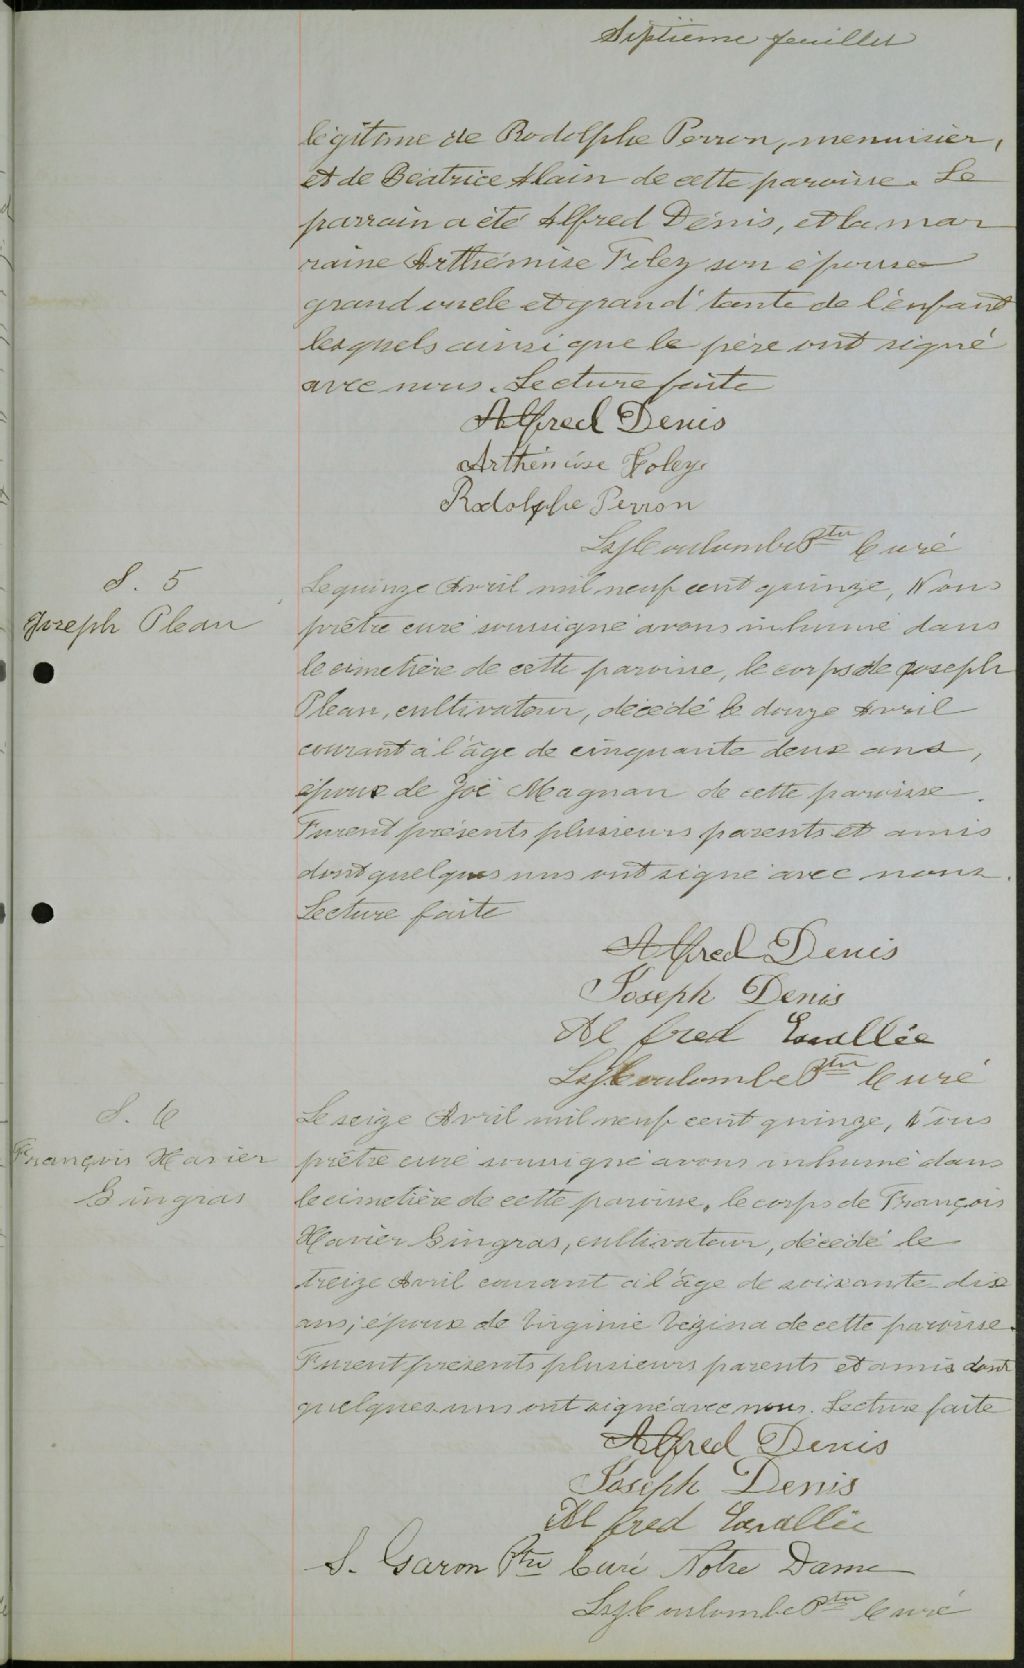 Septième feuillet
légitime de Rodolphe Perron, menuisier,
et de Béatrice Alain de cette paroisse. Le
parrain a été Alfred Dénis, et la mar
raine Arthémise Foley son épouse
grand oncle et grand'tante de l'enfant
lesquels ainsi que le père ont signé
avec nous. Lecture faite
Alfred Denis
Arthémise Foley
Rodolphe Perron
Coulombe Ptre Curé
S. 5
Joseph Plean
Le quinze Avril mil neuf cent quinze, Nous
prêtre curé soussigné avons inhumé dans
le cimetière de cette paroisse, le corps de Joseph
Plean, cultivateur, décédé le douze Avril
courant à l'âge de cinquante deux ans,
époux de Zoé Magnan de cette paroisse.
Furent présents plusieurs parents et amis
dont quelques uns ont signé avec nous.
Lecture faite
Alfred Denis
Joseph Denis
Alfred Lavallée
Coulombe Ptre Curé
S. 6
François Xavier
Gingras
Le seize Avril mil neuf cent quinze, Nous
prêtre curé soussigné avons inhumé dans
le cimetière de cette paroisse, le corps de François
Xavier Gingras, cultivateur, décédé le
treize Avril courant à l'âge de soixante dix
ans, époux de Virginie Vézina de cette paroisse.
Furent présents plusieurs parents et amis dont
quelques uns ont signé avec nous. Lecture faite
Alfred Denis
Joseph Denis
Alfred Lavallée
S. Garon Ptre Curé Notre Dame
Coulombe Ptre Curé